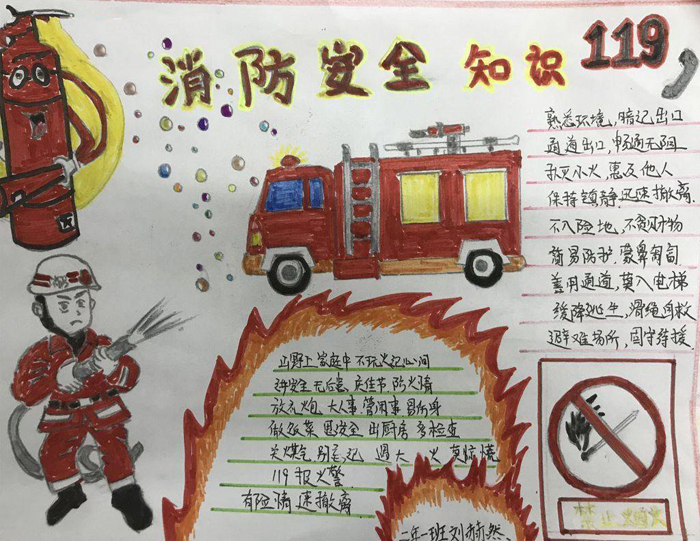 消防安全知识 119
熟悉环境，暗记出口
通道出口，畅通无阻
扑灭小火，惠及他人
保持镇静，迅速撤离.
不入险地，不贪财物
简易防护，蒙鼻匍匐
善用通道，莫入电梯
缓降逃生，滑绳自救
避难场所，固守待援.
山野上 家庭中 不玩火 记心间
安全 无后患 庆佳节 防火
放 炮 大人事 管闲事
做饭菜 安全 出厨房 多检查
关煤气 别忘记 遇大火 莫惊慌
119报火警
有险情 速撤离
二年一班刘赫然.
禁止烟火